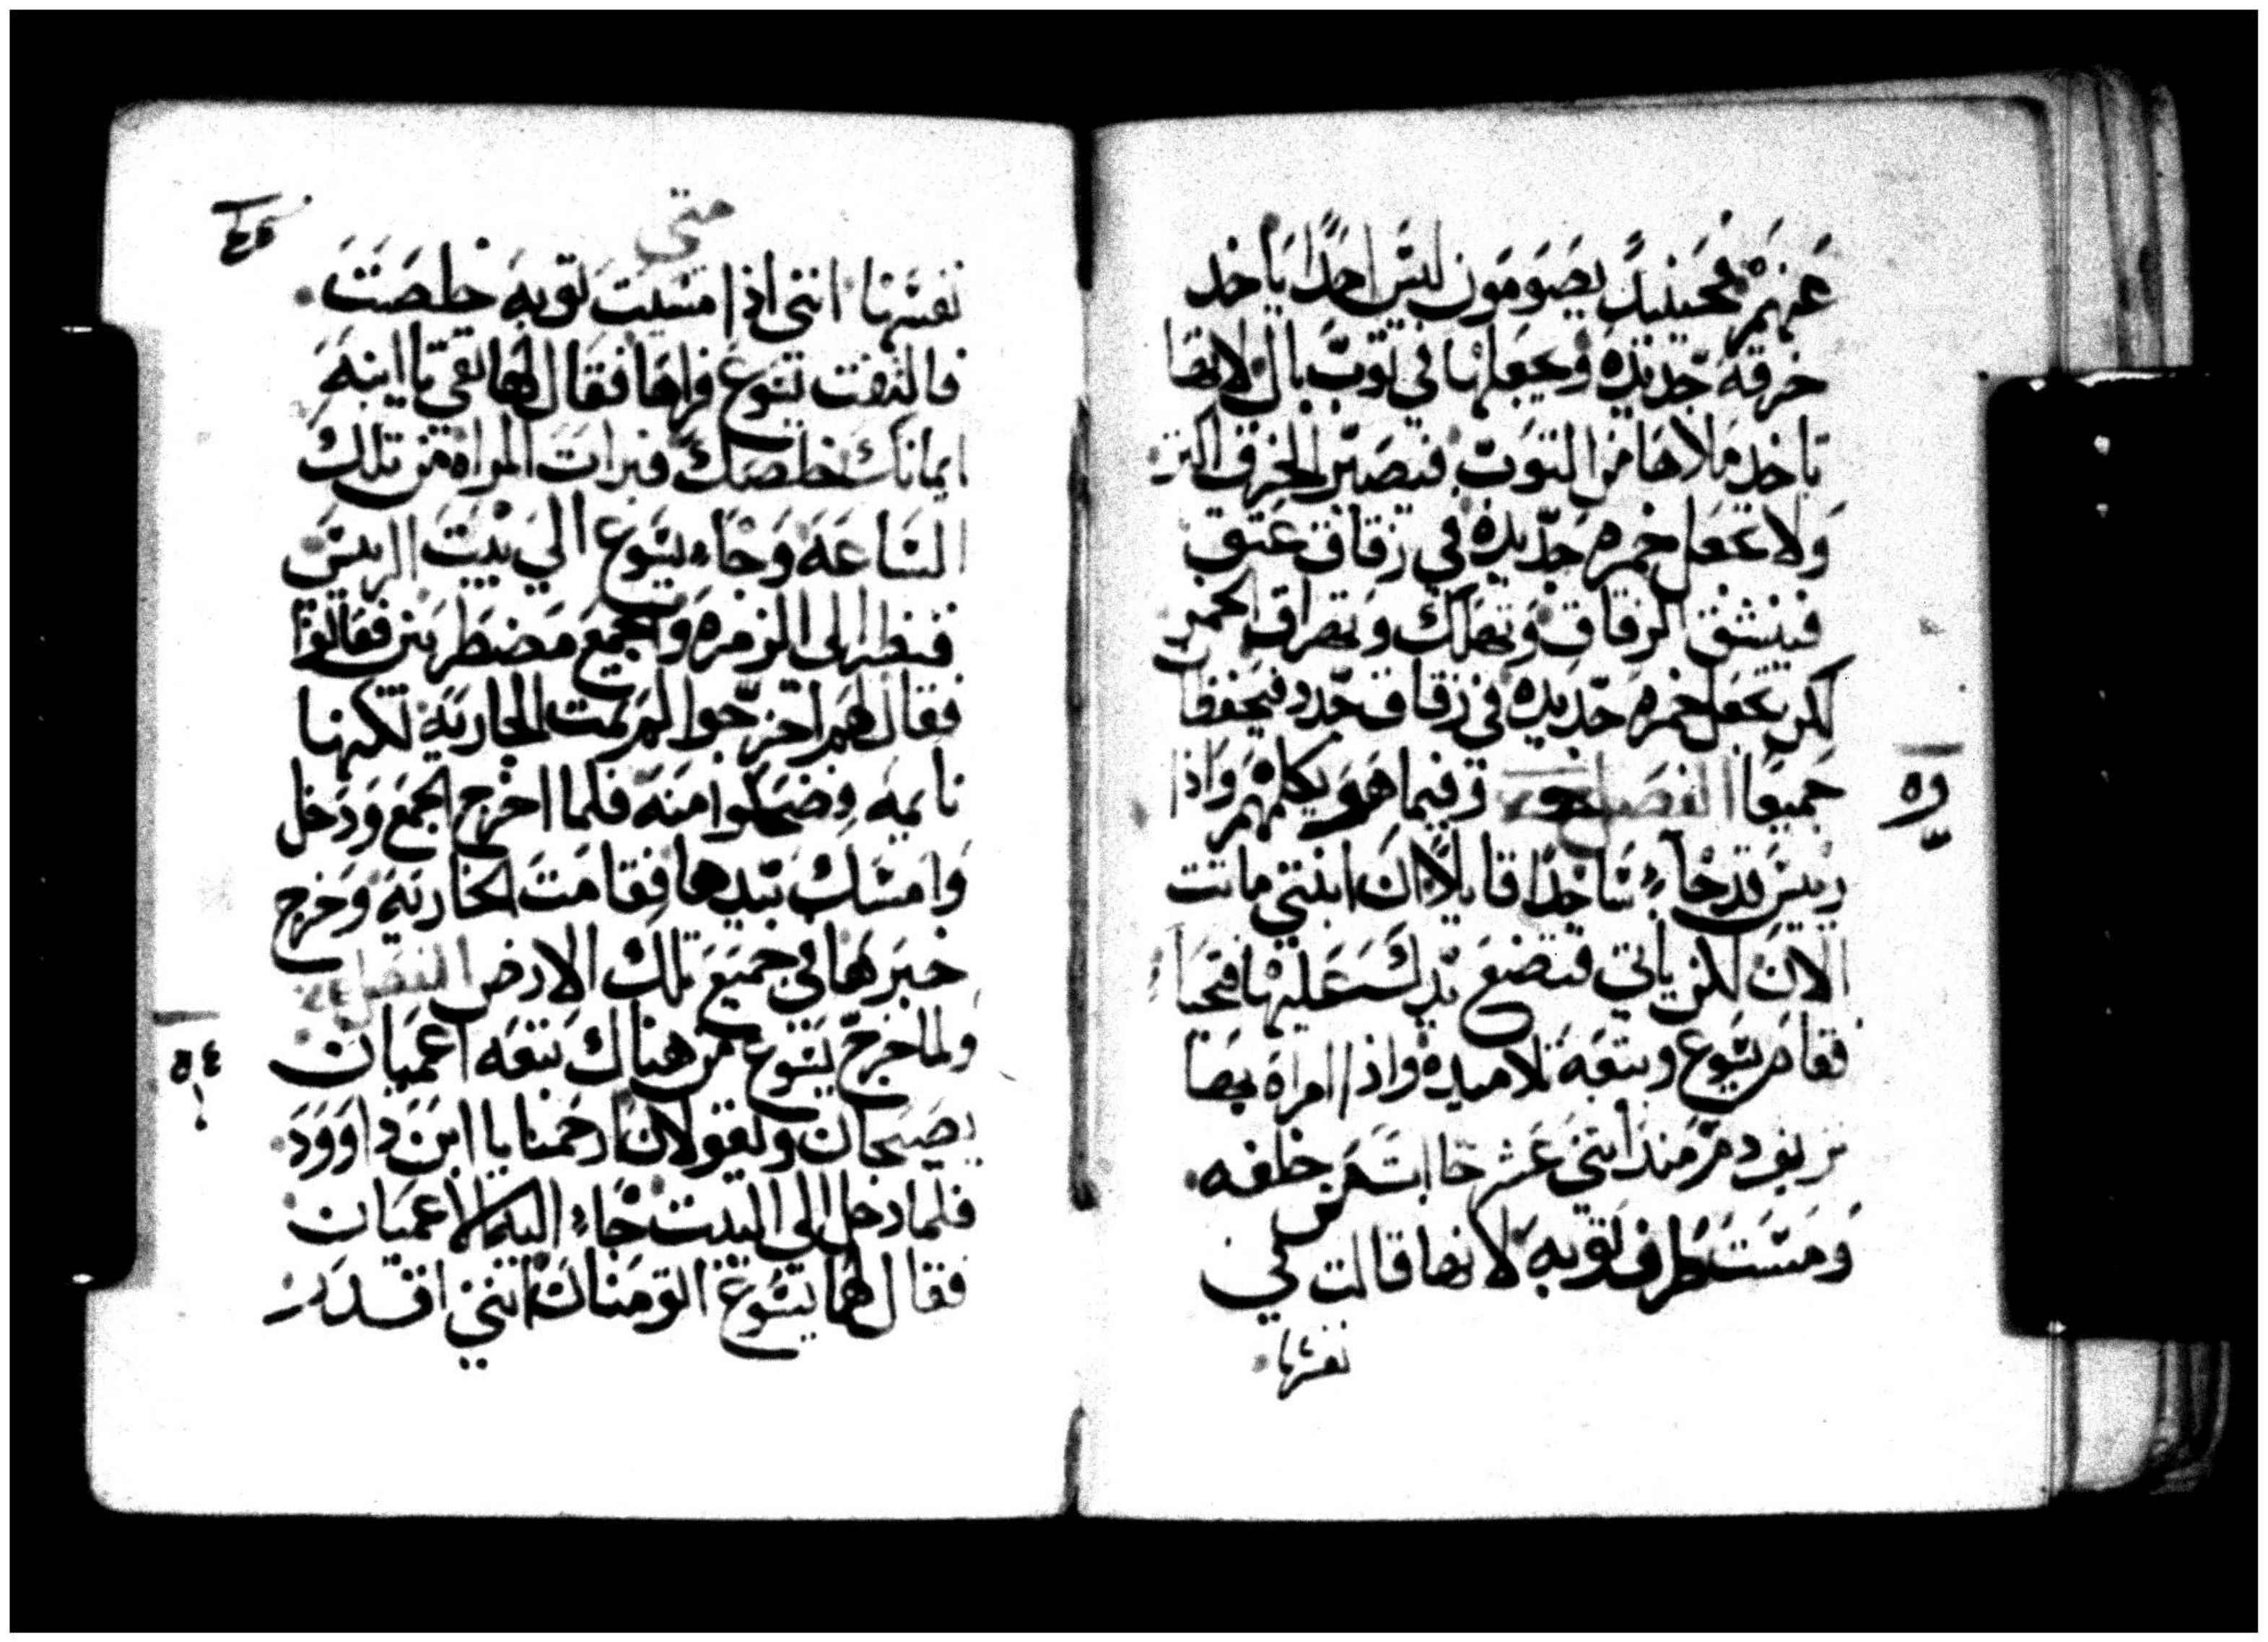 عنهم فحينيد يصومون ليس احدا ياخد
خرقه جديده ويجعلها في توب بال لانها
تاخد ملاها من التوب فيصير الخرق اكتر
ولا تجعل خمره جديده في زقاق عتق
فينشق الزقاق وتهلك وتهراق الخمر
لكن يجعل خمره جديده في زقاق جدد فيحفظا
جميعا الفصل وفيما هو يكلمهم واذا
رييس قد جآء ساجدا قايلا ان ابنتي ماتت
الان لكن ياتي فيضع يدك عليها فتحيا
فقام يسوع وتبعه تلاميده واذا امراه بها
نزيف دم مند اتني عشر اتت من خلفه
ومست طرف توبه لانها قالت في
نفسها
متي
نفسها انني اذا مسيت توبه خلصت
فالتفت يسوع فراها فقال لها تقي يا ابنه
ايمانك خلصك فبرات المراه من تلك
الساعه وجاء يسوع الي بيت الرييس
فنظر الى الزمره والجمع مضطربين فقالوا
فقال لهم اخرجوا لم تمت الجاريه لكنها
نايمه فضحكوا منه فلما اخرج الجمع ودخل
وامسك بيدها فقامت الجاريه وخرج
خبرها في جميع تلك الارض الفصل
ولما خرج يسوع من هناك تبعه اعميان
يصيحان ويقولان ارحمنا يا ابن داوود
فلما دخل الي البيت جاء اليه الاعميان
فقال لهما يسوع اتومنان انني اقدر
٥٤